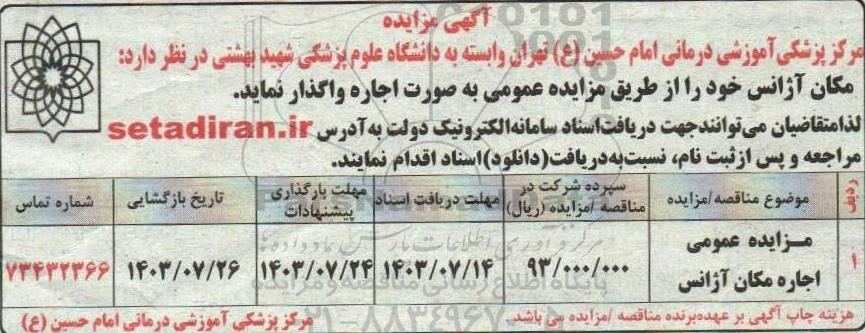 آگهی مزایده
مرکز پزشکی آموزشی درمانی امام حسین (ع) تهران وابسته به دانشگاه علوم پزشکی شهید بهشتی در نظر دارد:
مکان آژانس خود را از طریق مزایده عمومی به صورت اجاره واگذار نماید.
لذا متقاضیان می‌توانند جهت دریافت اسناد سامانه الکترونیک دولت به آدرس setadiran.ir
مراجعه و پس از ثبت نام، نسبت به دریافت (دانلود) اسناد اقدام نمایند.
ردیف موضوع مناقصه/مزایده سپرده شرکت در مناقصه /مزایده (ریال) مهلت دریافت اسناد مهلت بارگذاری پیشنهادات تاریخ بازگشایی شماره تماس
۱ مزایده عمومی اجاره مکان آژانس ۹۳/۰۰۰/۰۰۰ ۱۴۰۳/۰۷/۱۴ ۱۴۰۳/۰۷/۲۴ ۱۴۰۳/۰۷/۲۶ ۷۳۴۳۲۳۶۶
هزینه چاپ آگهی بر عهده برنده مناقصه /مزایده می باشد.
مرکز پزشکی آموزشی درمانی امام حسین (ع)
پایگاه اطلاع رسانی مناقصه و مزایده